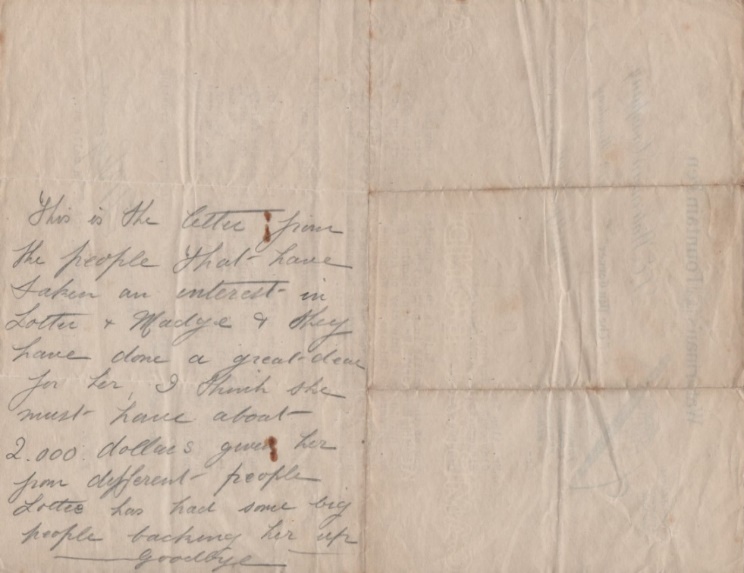 This is the letter from
the people that have
taken an interest in
Lottie & Madge & they
have done a great deal
for her, I think she
must have about
2.000 dollars given her
from different people
Lottie has had some big
people backing her up
Goodbye